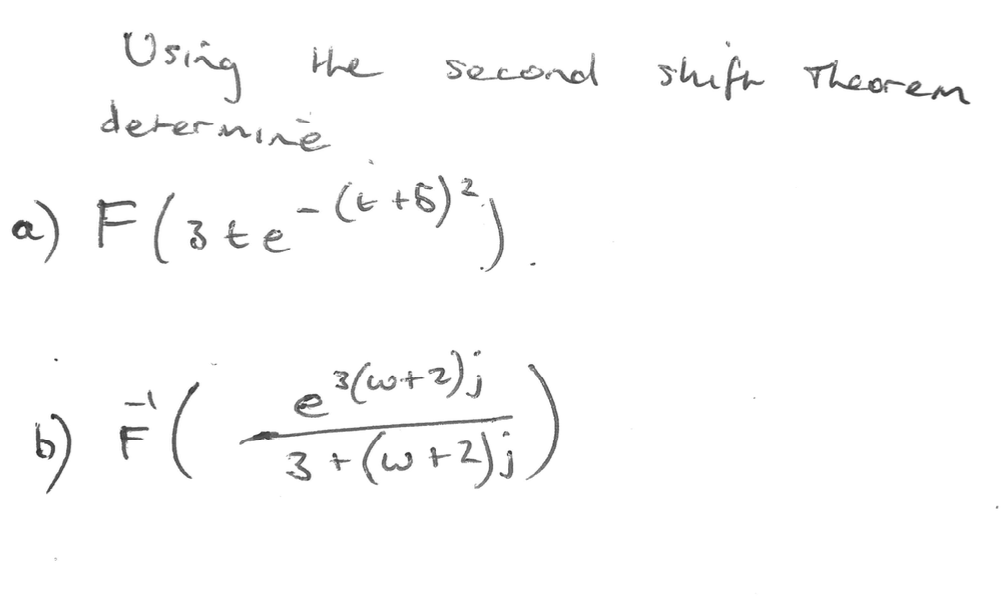 Using the second shift Theorem
determine
a) F(3te^{-(t+5)^2}).
b) F^{-1}(e^{3(ω+2)j} / 3+(ω+2)j)